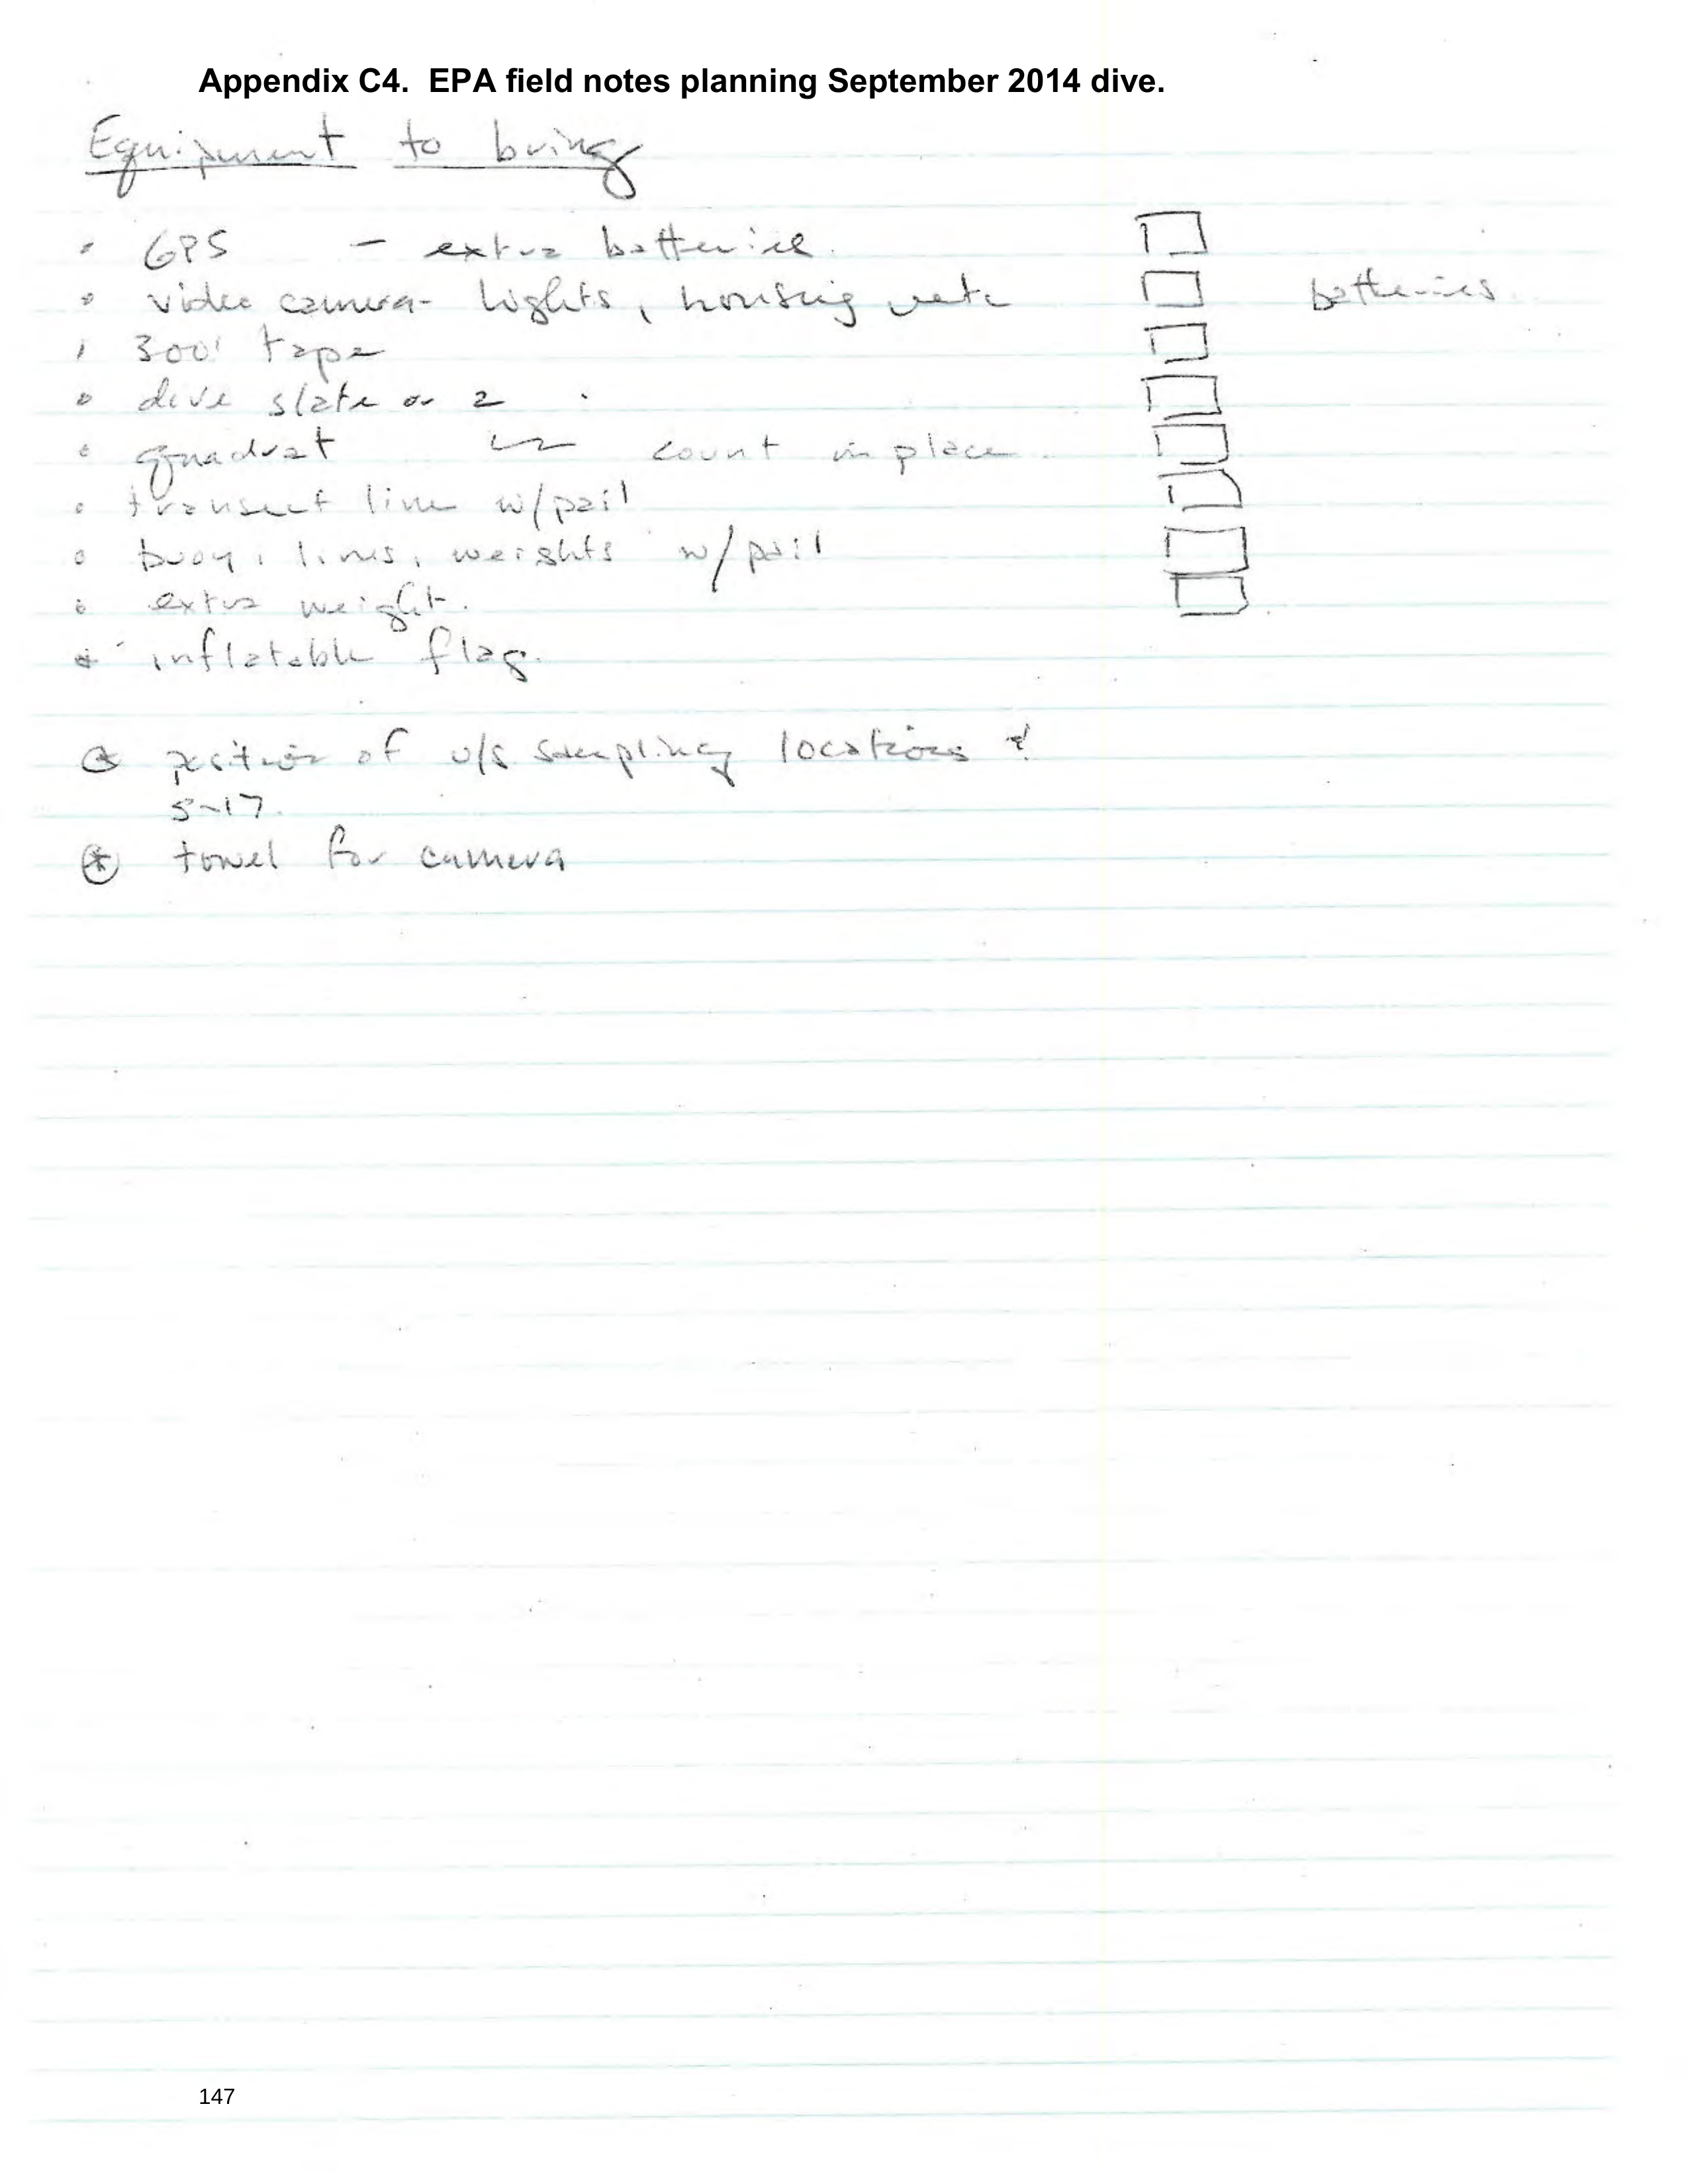 Appendix C4. EPA field notes planning September 2014 dive.
Equipment to bring
GPS — extra batteries.
video camera - lights, housing, etc batteries
300' tape
dive slate or 2
quadrat count in place
transect line w/pail
buoy, lines, weights w/pail
extra weight.
inflatable flag.
position of u/s sampling locations &
S-17.
towel for camera
147